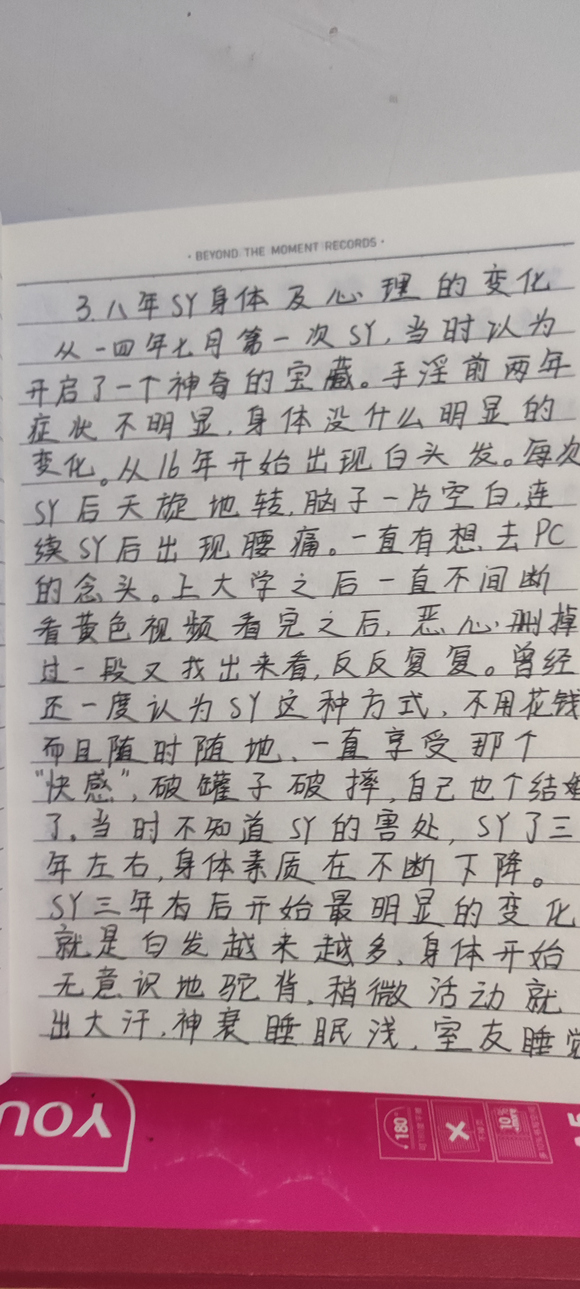 · BEYOND THE MOMENT RECORDS ·
3.八年SY身体及心理的变化
从一四年七月第一次SY,当时认为
开启了一个神奇的宝藏。手淫前两年
症状不明显,身体没什么明显的
变化。从16年开始出现白头发。每次
SY后天旋地转,脑子一片空白,连
续SY后出现腰痛。一直有想去PC
的念头。上大学之后一直不间断
看黄色视频看完之后,恶心删掉
过一段又找出来看,反反复复。曾经
还一度认为SY这种方式,不用花钱
而且随时随地、一直享受那个
"快感",破罐子破摔,自己也个结婚
了。当时不知道SY的害处,SY了三
年左右,身体素质在不断下降。
SY三年右后开始最明显的变化
就是白发越来越多,身体开始
无意识地驼背,稍微活动就
出大汗,神衰睡眠浅,室友睡觉
YOU
180°
10%